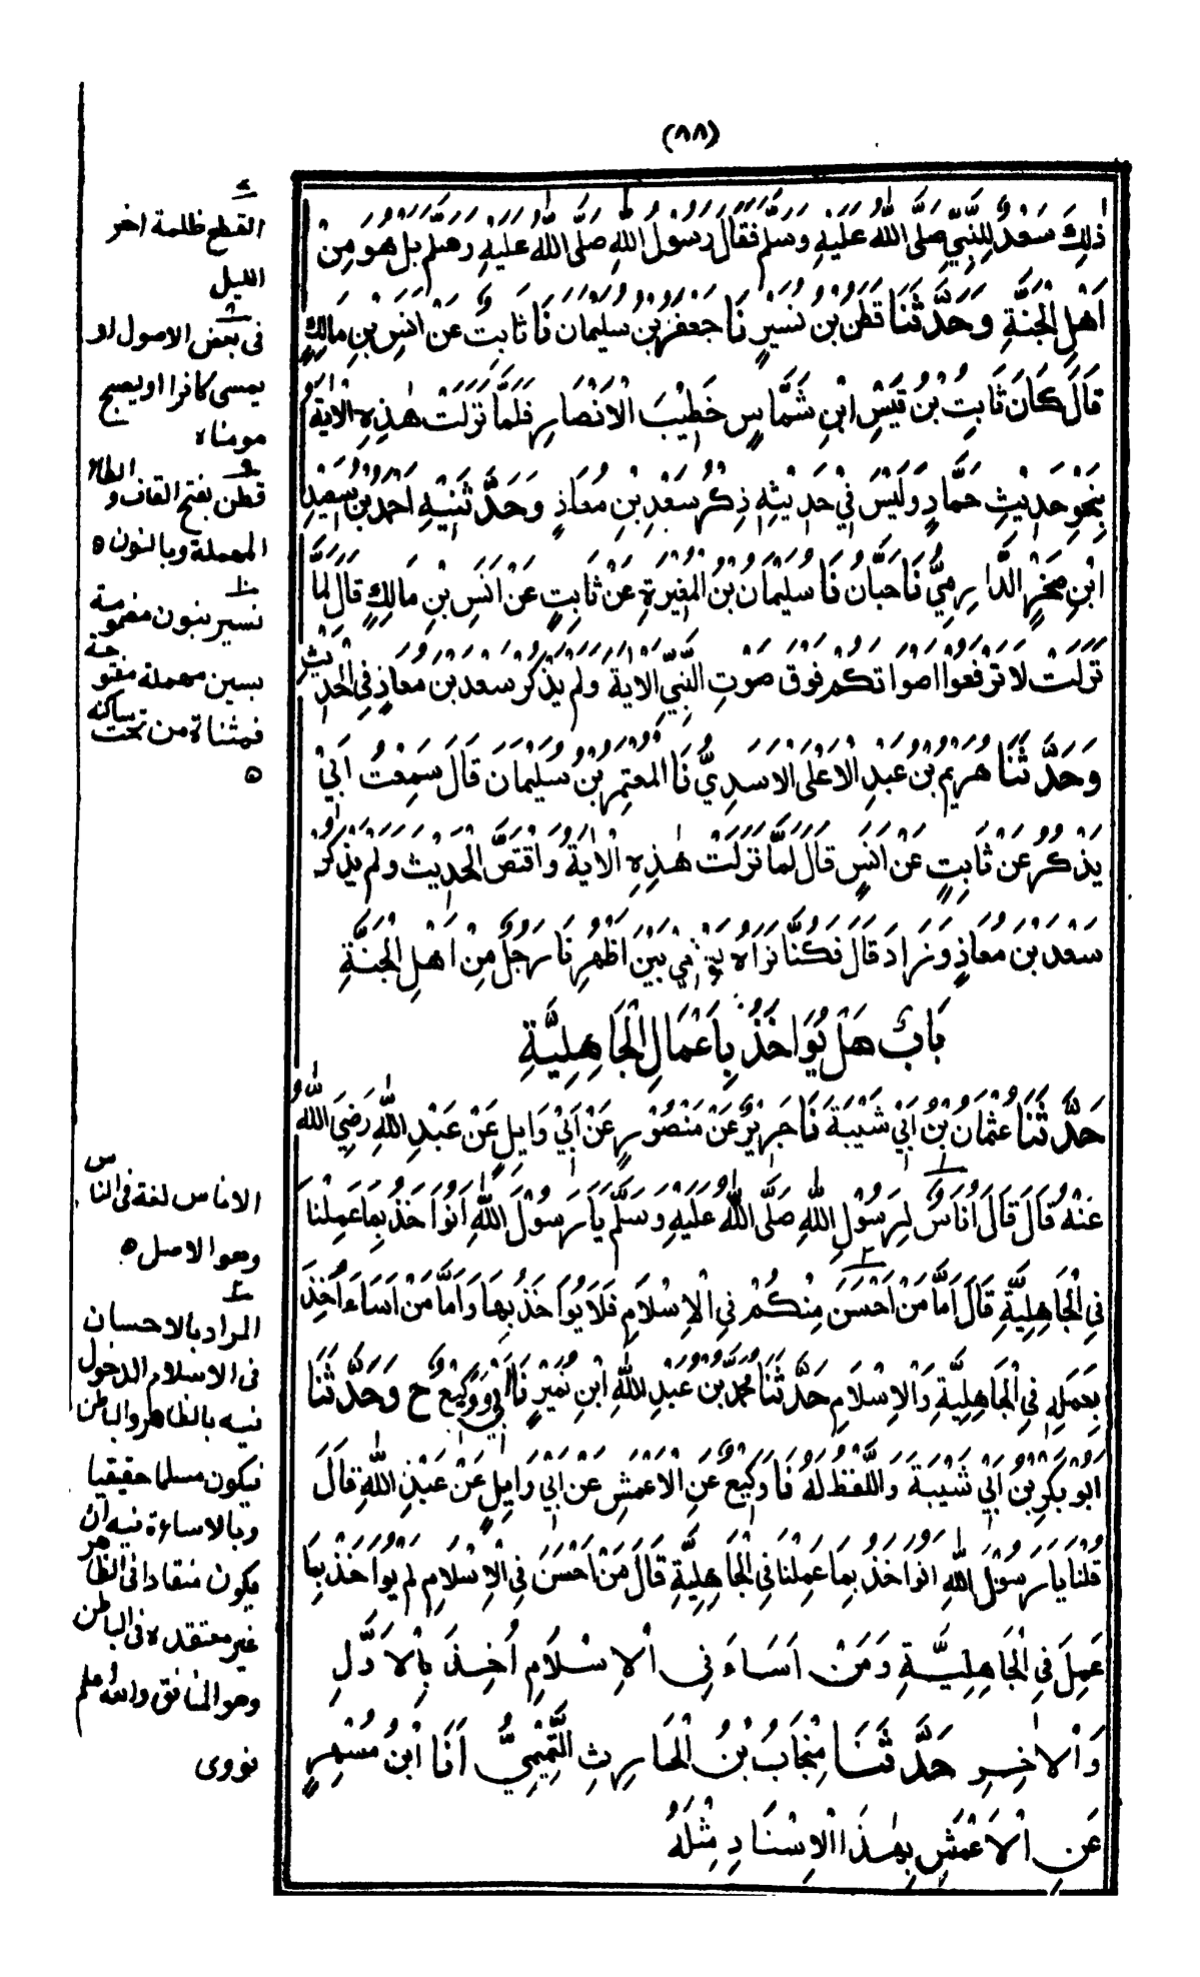 (٨٨)
ذٰلِكَ سَعْدٌ لِلنَّبِيِّ صَلَّى اللّٰهُ عَلَيْهِ وَسَلَّمَ فَقَالَ رَسُولُ اللّٰهِ صَلَّى اللّٰهُ عَلَيْهِ وسلم بَلْ هُوَ مِنْ
اَهْلِ الْجَنَّةِ وَحَدَّثَنَا قَطَنُ بْنُ نُسَيْرٍ نَا جَعْفَرُ بْنُ سُلَيْمَانَ نَا ثَابِتٌ عَنْ اَنَسِ بْنِ مَالِكٍ
قَالَ كَانَ ثَابِتُ بْنُ قَيْسِ ابْنِ شَمَّاسٍ خَطِيْبَ الْاَنْصَارِ فَلَمَّا نَزَلَتْ هٰذِهِ الْاٰيَةُ
بِنَحْوِ حَدِيْثِ حَمَّادٍ وَلَيْسَ فِيْ حَدِيْثِهِ ذِكْرُ سَعْدِ بْنِ مُعَاذٍ وَحَدَّثَنِيْهِ اَحْمَدُ بْنُ سَعِيْدِ
ابْنِ صَخْرٍ الدَّارِمِيُّ نَا حَبَّانُ نَا سُلَيْمَانُ بْنُ الْمُغِيْرَةِ عَنْ ثَابِتٍ عَنْ اَنَسِ بْنِ مَالِكٍ قَالَ لَمَّا
نَزَلَتْ لَا تَرْفَعُوْا اَصْوَاتَكُمْ فَوْقَ صَوْتِ النَّبِيِّ الْاٰيَةَ وَلَمْ يَذْكُرْ سَعْدَ بْنَ مُعَاذٍ فِى الْحَدِيْثِ
وَحَدَّثَنَا هُرَيْمُ بْنُ عَبْدِ الْاَعْلَى الْاَسَدِيُّ نَا الْمُعْتَمِرُ بْنُ سُلَيْمَانَ قَالَ سَمِعْتُ اَبِيْ
يَذْكُرُ عَنْ ثَابِتٍ عَنْ اَنَسٍ قَالَ لَمَّا نَزَلَتْ هٰذِهِ الْاٰيَةُ وَاقْتَصَّ الْحَدِيْثَ وَلَمْ يَذْكُرْ
سَعْدَ بْنَ مُعَاذٍ وَزَادَ قَالَ فَكُنَّا نَرَاهُ يَمْشِيْ بَيْنَ اَظْهُرِنَا رَجُلٌ مِنْ اَهْلِ الْجَنَّةِ
بَابٌ هَلْ يُوَاخَذُ بِاَعْمَالِ الْجَاهِلِيَّةِ
حَدَّثَنَا عُثْمَانُ بْنُ اَبِيْ شَيْبَةَ نَا جَرِيْرٌ عَنْ مَنْصُوْرٍ عَنْ اَبِيْ وَايِلٍ عَنْ عَبْدِ اللّٰهِ رَضِيَ اللّٰهُ
عَنْهُ قَالَ قَالَ اُنَاسٌ لِرَسُوْلِ اللّٰهِ صَلَّى اللّٰهُ عَلَيْهِ وَسَلَّمَ يَا رَسُوْلَ اللّٰهِ اَنُوَاخَذُ بِمَا عَمِلْنَا
فِي الْجَاهِلِيَّةِ قَالَ اَمَّا مَنْ اَحْسَنَ مِنْكُمْ فِي الْاِسْلَامِ فَلَا يُوَاخَذُ بِهَا وَاَمَّا مَنْ اَسَاءَ اُخِذَ
بِعَمَلِهِ فِي الْجَاهِلِيَّةِ وَالْاِسْلَامِ حَدَّثَنَا مُحَمَّدُ بْنُ عَبْدِ اللّٰهِ ابْنِ نُمَيْرٍ نَا اَبِيْ وَوَكِيْعٌ ح وَحَدَّثَنَا
اَبُو بَكْرِ بْنُ اَبِيْ شَيْبَةَ وَاللَّفْظُ لَهُ نَا وَكِيْعٌ عَنِ الْاَعْمَشِ عَنْ اَبِيْ وَايِلٍ عَنْ عَبْدِ اللّٰهِ قَالَ
قُلْنَا يَا رَسُوْلَ اللّٰهِ اَنُوَاخَذُ بِمَا عَمِلْنَا فِي الْجَاهِلِيَّةِ قَالَ مَنْ اَحْسَنَ فِي الْاِسْلَامِ لَمْ يُوَاخَذْ بِمَا
عَمِلَ فِي الْجَاهِلِيَّةِ وَمَنْ اَسَاءَ فِي الْاِسْلَامِ اُخِذَ بِالْاَوَّلِ
وَالْاٰخِرِ حَدَّثَنَا مِنْجَابُ بْنُ الْحَارِثِ التَّمِيْمِيُّ اَنَا ابْنُ مُسْهِرٍ
عَنِ الْاَعْمَشِ بِهٰذَا الْاِسْنَادِ مِثْلَهُ
القطع ظلمة اخر
الليل
فى بعض الاصول او
يمسى كافرا او يصبح
مومنا ٥
قطن بفتح القاف و الطاء
المهملة وبالنون ٥
نسير بنون مضمومة
بسين مهملة مفتوحة
فمثناة من تحت ساكنة
٥
الاناس لغة فى الناس
وهو الاصل ٥
٢
المراد بالاحسان
فى الاسلام الدخول
فيه بالظاهر والباطن
فيكون مسلما حقيقيا
وبالاساءة فيه ان
يكون منقادا فى الظاهر
غير معتقده فى الباطن
وهو المنافق والله اعلم
نووى